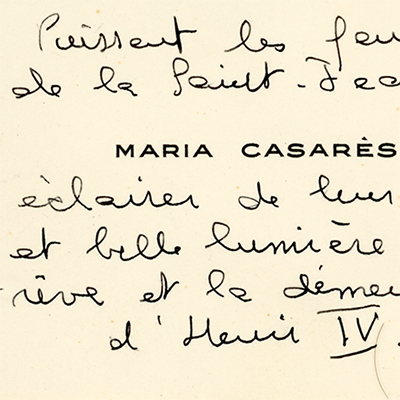 Puissent les feu
de la Saint-Jea
MARIA CASARÈS
éclairer de leur
et belle lumière
rêve et la déme
d'Henri IV.